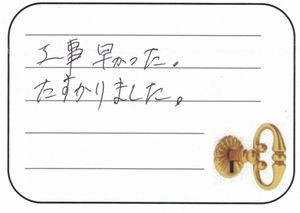 工事早かった。
たすかりました。